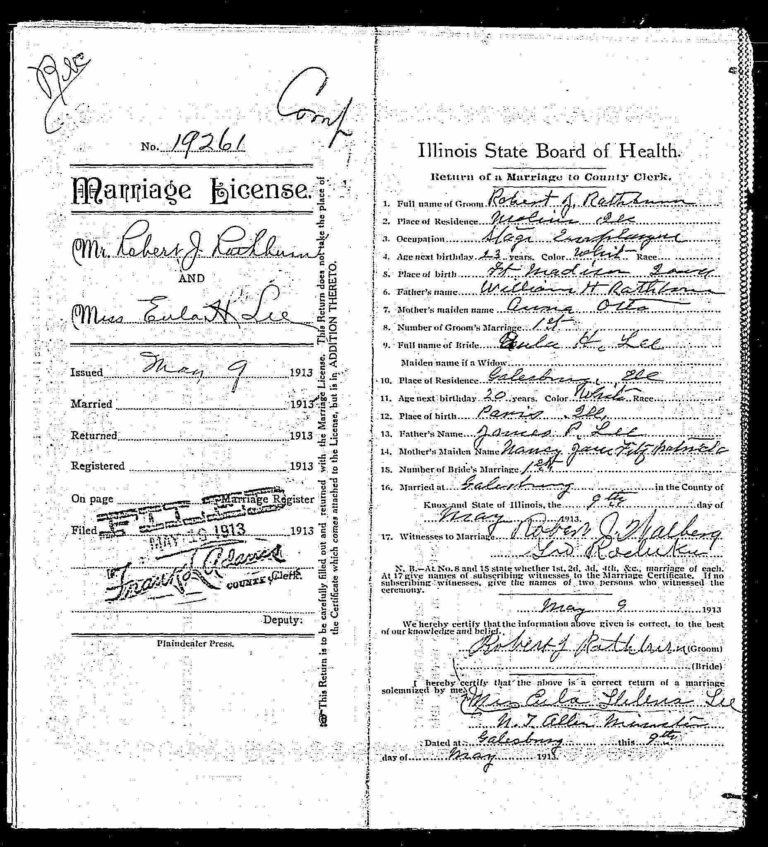 No. 19261
Comp
Marriage License.
Mr. Robert J Rathburn
AND
Miss Eula H Lee
Issued May 9 1913
Married 1913
Returned 1913
Registered 1913
On page Marriage Register
FILED
Filed 1913
MAY 19 1913
Frank L Adams
COUNTY Clerk.
Deputy:
Plaindealer Press.
This Return is to be carefully filled out and returned with the Marriage License. This Return does not take the place of
the Certificate which comes attached to the License, but is in ADDITION THERETO.
Illinois State Board of Health.
Return of a Marriage to County Clerk.
1. Full name of Groom Robert J. Rathburn
2. Place of Residence Moline Ill
3. Occupation Stage Employee
4. Age next birthday 23 years. Color White Race
5. Place of birth Ft Madison Iowa
6. Father's name William H Rathburn
7. Mother's maiden name Anna Otto
8. Number of Groom's Marriage 1st
9. Full name of Bride Eula H. Lee
Maiden name if a Widow
10. Place of Residence Galesburg, Ill
11. Age next birthday 20 years. Color White Race
12. Place of birth Paris Ill
13. Father's Name James P. Lee
14. Mother's Maiden Name Nancy Jane Fitzpatrick
15. Number of Bride's Marriage 1st
16. Married at Galesburg in the County of
Knox and State of Illinois, the 9th day of
May 1913.
17. Witnesses to Marriage Robert J Walberg
N. B.—At No. 8 and 15 state whether 1st, 2d, 3d, 4th, &c., marriage of each.
At 17 give names of subscribing witnesses to the Marriage Certificate. If no
subscribing witnesses, give the names of two persons who witnessed the
ceremony.
May 9 1913
We hereby certify that the information above given is correct, to the best
of our knowledge and belief.
Robert J Rathburn (Groom)
(Bride)
I hereby certify that the above is a correct return of a marriage
solemnized by me
Miss Eula Helena Lee
N. T. Allen Minister
Dated at Galesburg this 9th
day of May 1913